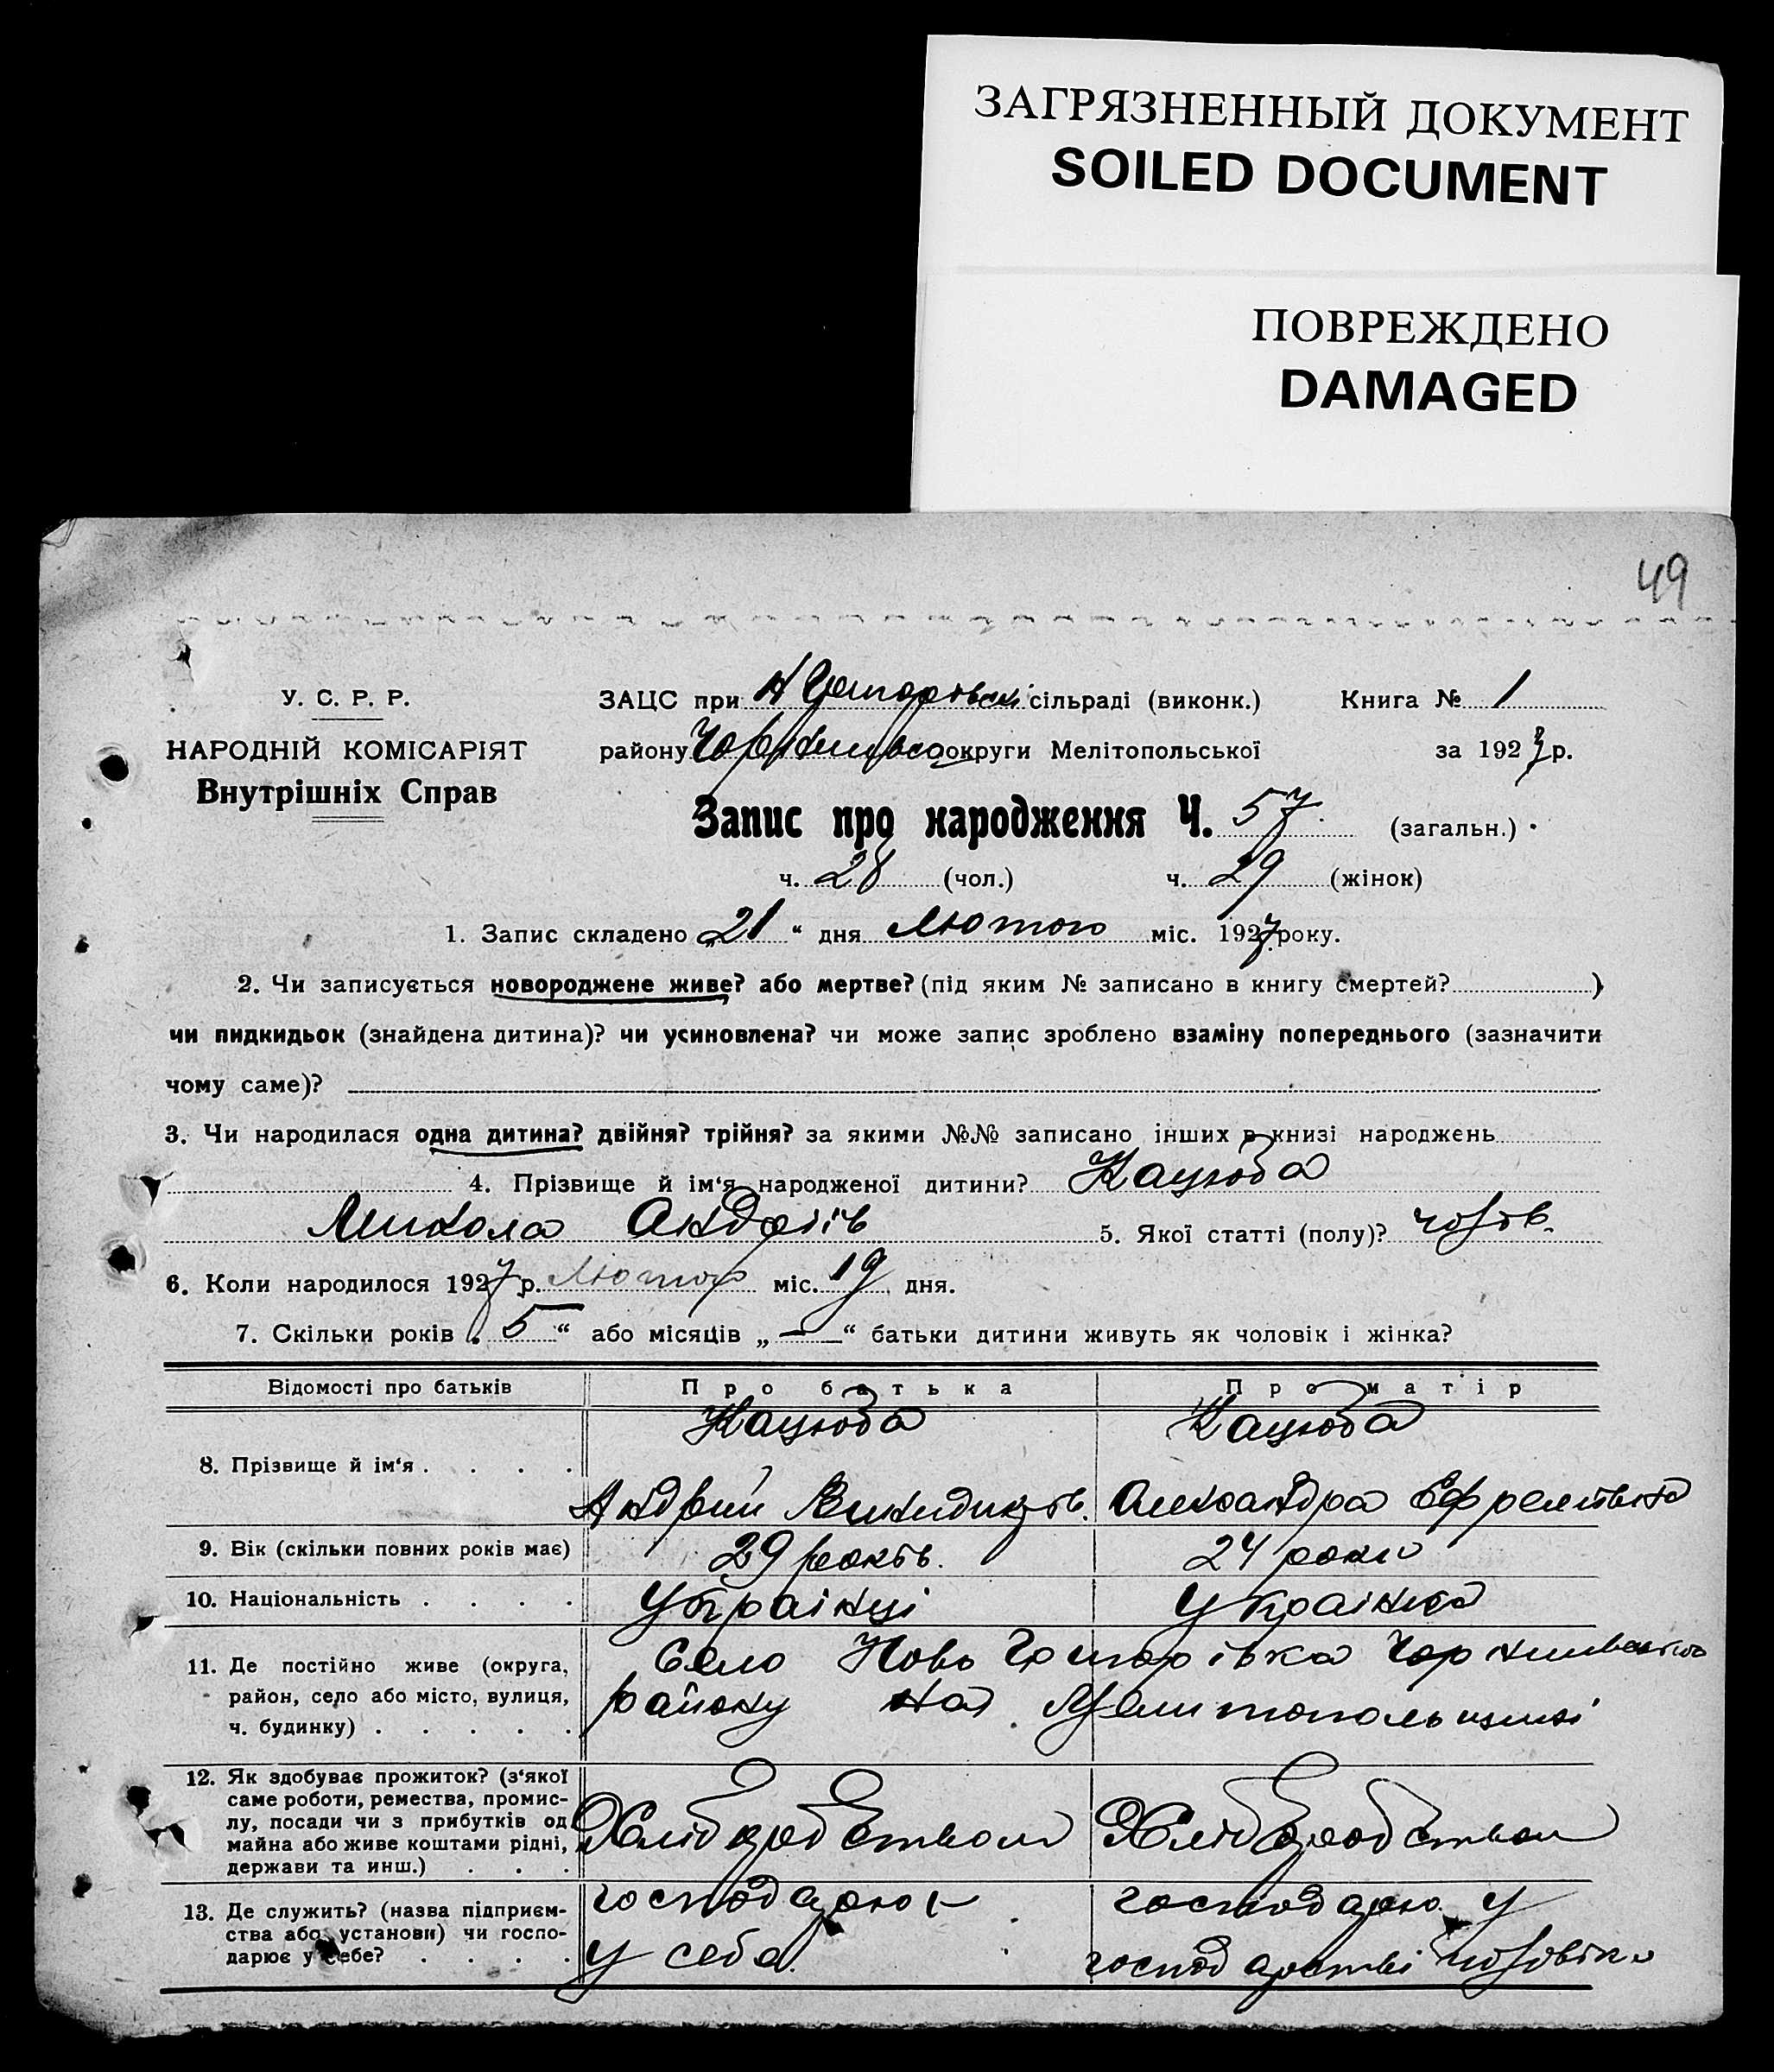 ЗАГРЯЗНЕННЫЙ ДОКУМЕНТ
SOILED DOCUMENT
ПОВРЕЖДЕНО
DAMAGED
49
У. С. Р. Р.
НАРОДНІЙ КОМІСАРІЯТ
Внутрішніх Справ
ЗАЦС при сільраді (виконк.) Книга № 1
району округи Мелітопольської за 1927 р.
Запис про народження Ч. 57 (загальн.)
ч. 28 (чол.) ч. 29 (жінок)
1. Запис складено „21“ дня Лютого міс. 1927 року.
2. Чи записується новороджене живе? або мертве? (під яким № записано в книгу смертей? )
чи пидкидьок (знайдена дитина)? чи усиновлена? чи може запис зроблено взаміну попереднього (зазначити
чому саме)?
3. Чи народилася одна дитина? двійня? трійня? за якими №№ записано інших в книзі народжень
4. Прізвище й ім‘я народженої дитини? Кацюба
Микола Андріїв 5. Якої статті (полу)? чолов.
6. Коли народилося 1927 р. Лютого міс. 19 дня.
7. Скільки років „5“ або місяців „—“ батьки дитини живуть як чоловік і жінка?
Відомості про батьків Про батька Про матір
8. Прізвище й ім‘я . . . . Кацюба Кацюба
Андрій Александра Ефремівна
9. Вік (скільки повних років має) 29 років. 24 роки
10. Національність . . . . Українці Українка
11. Де постійно живе (округа,
район, село або місто, вулиця,
ч. будинку) . . . . .
Село Ново Григорівка
району на Мелитопольщині
12. Як здобуває прожиток? (з‘якої
саме роботи, ремества, промис-
лу, посади чи з прибутків од
майна або живе коштами рідні,
держави та инш.) . . .
Хлібробством Хлібробством
13. Де служить? (назва підприєм-
ства або установи) чи госпо-
дарює у себе? . . . .
господарює господарює у
у себе. господарстві чоловіка